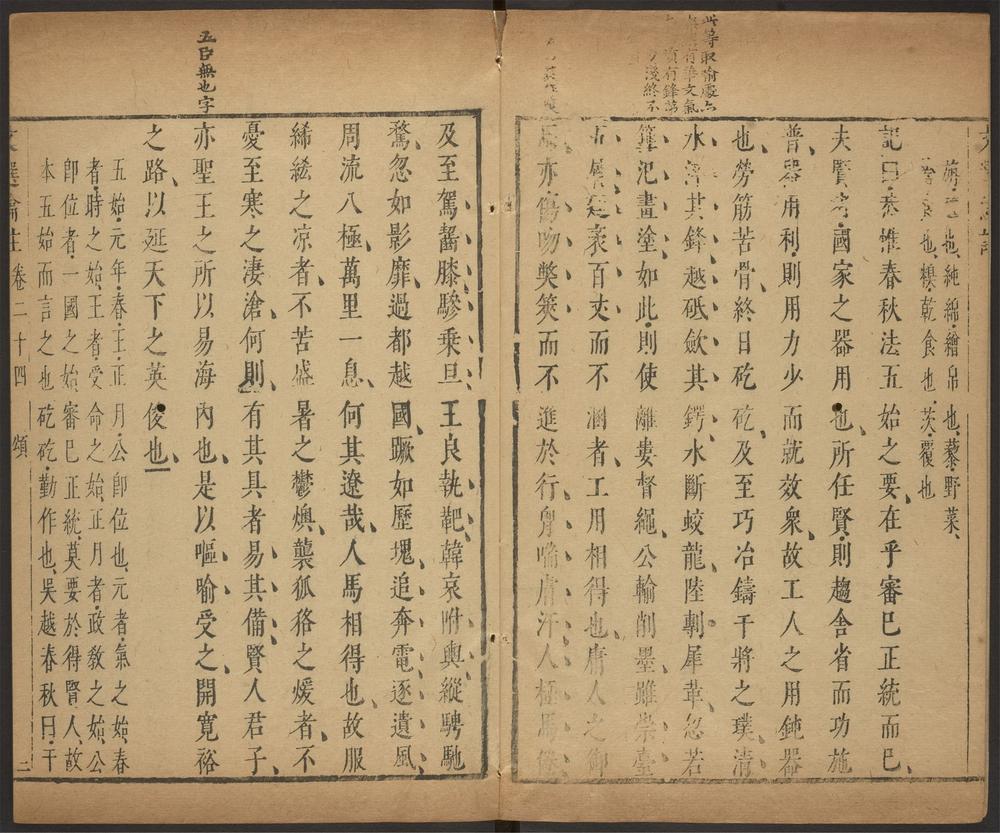 此等取喻處
純綿繒帛也藜野菜
也糗乾食也茨覆也
記曰恭惟春秋法五始之要在乎審己正統而已
夫賢者國家之器用也所任賢則趨舍省而功施
普器用利則用力少而就效衆故工人之用鈍器
也勞筋苦骨終日矻矻及至巧冶鑄干將之璞清
水淬其鋒越砥歛其鍔水斷蛟龍陸剸犀革忽若
篲氾畫塗如此則使離婁督繩公輸削墨雖崇臺
五層延袤百丈而不溷者工用相得也庸人之御
亦傷吻獘筴而不進於行胷喘膚汗人極馬倦
五臣無也字
及至駕齧膝驂乗旦王良執靶韓哀附輿縱騁馳
騖忽如影靡過都越國蹶如歷塊追奔電逐遺風
周流八極萬里一息何其遼哉人馬相得也故服
絺綌之凉者不苦盛暑之鬱燠襲狐狢之煖者不
憂至寒之凄滄何則有其具者易其備賢人君子
亦聖王之所以易海內也是以嘔喻受之開寛裕
之路以延天下之英俊也
五始元年春王正月公卽位也元者氣之始春
者時之始王者受命之始正月者政敎之始公
卽位者一國之始審己正統莫要於得賢人故
本五始而言之也矻矻勤作也吳越春秋曰干
文選 卷二十四 頌 三